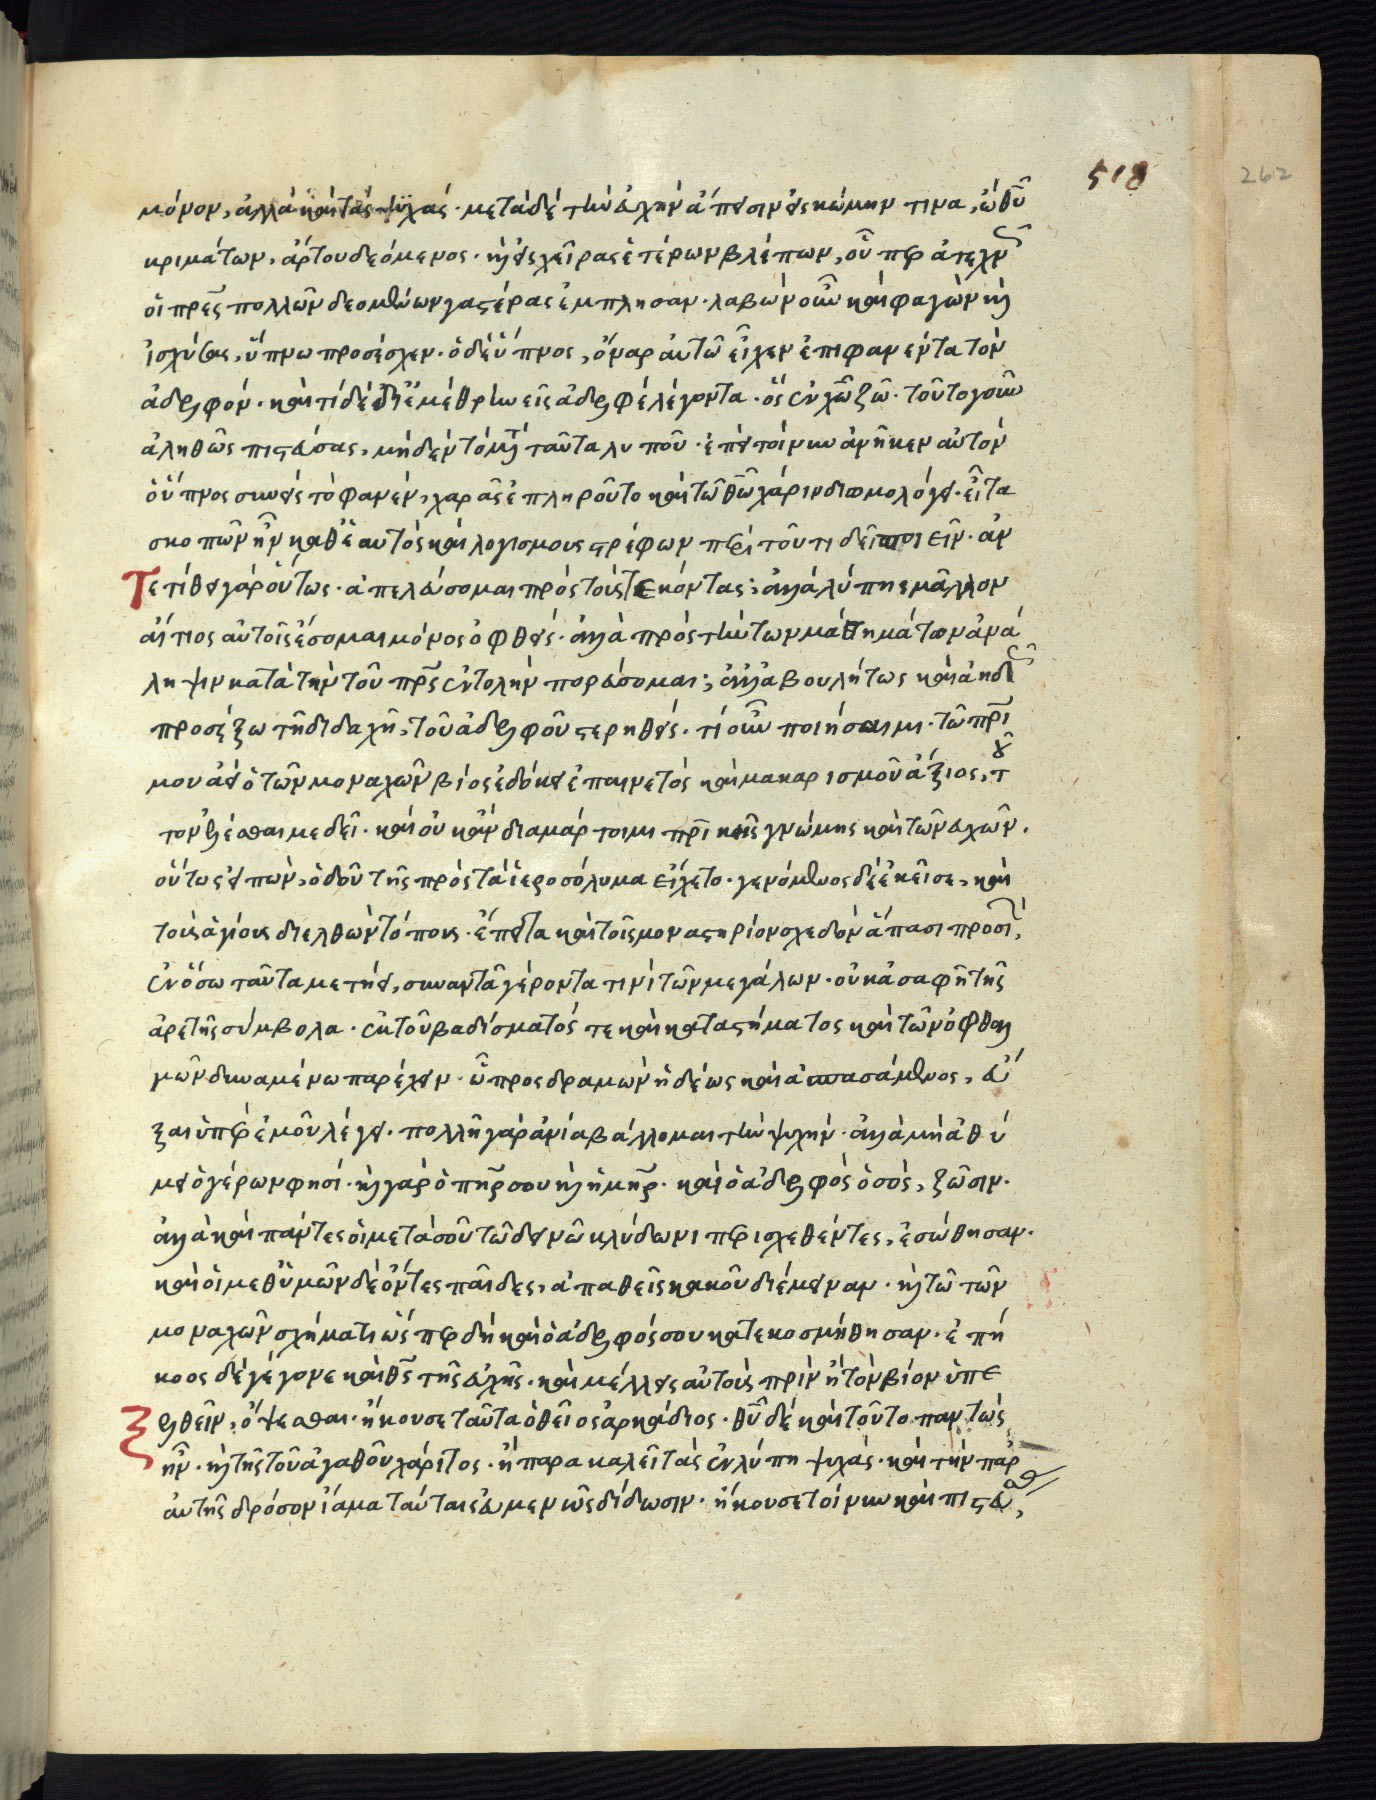 518
262
μόνον, ἀλλὰ καὶ τὰς ψυχάς· μετὰ δὲ τὴν εὐχὴν ἄπεισιν εἰς κώμην τινα, ὢ θυ
κριμάτων, ἄρτου δεόμενος· καὶ εἰς χεῖρας ἑτέρων βλέπων, οὗ περ ἀτεχν
οἱ πρες πολλῶν δεομένων γαστέρας ἐμπλησαν· λαβὼν οὖν καὶ φαγὼν καὶ
ἰσχύσας, ὕπνω προσέσχεν· ὁ δὲ ὕπνος, ὄναρ αὐτῶ εἶχεν ἐπιφανέντα τὸν
ἀδελφόν· καὶ τί δὲ δι' ἐμὲ θρηνεῖς ἀδελφὲ λέγοντα· ὃς ἐν χω ζῶ· τοῦτο γοῦν
ἀληθῶς πιστεύσας, μηδὲν τὸ μετὰ ταῦτα λυποῦ· ἐπεὶ τοίνυν ἀνῆκεν αὐτὸν
ὁ ὕπνος συνεὶς τὸ φανέν, χαρᾶς ἐπληροῦτο καὶ τῶ θω χάριν διωμολόγει· εἶτα
σκοπῶν ἦν καθ' ἑαυτὸς καὶ λογισμους στρέφων περὶ τοῦ τι δεῖ ποιεῖν· ἀν
Τετίθει γὰρ οὕτως· ἀπελεύσομαι πρὸς τοὺς τεκόντας; ἀλλὰ λύπης μᾶλλον
αἴτιος αὐτοῖς ἔσομαι μόνος ὀφθείς· ἀλλὰ πρὸς τὴν τῶν μαθημάτων ἀνά
ληψιν κατὰ τὴν τοῦ πρς ἐντολὴν πορεύσομαι; ἀλλ' ἀβουλήτως καὶ ἀηδῶς
προσέξω τῆ διδαχῆ, τοῦ ἀδελφοῦ στερηθείς· τί οὖν ποιήσαιμι· τῶ πρι
μου ἀεὶ ὁ τῶν μοναχῶν βίος ἐδόκει ἐπαινετὸς καὶ μακαρισμοῦ ἄξιος, τοῦ
τον ἑλέσθαι με δεῖ· καὶ οὐκ ἂν διαμάρτοιμι πρι κῆς γνώμης καὶ τῶν εὐχῶν.
οὕτως εἰπών, ὁδοῦ τῆς πρὸς τὰ ἱεροσόλυμα εἴχετο· γενόμενος δὲ ἐκεῖσε, καὶ
τοὺς ἁγίους διελθὼν τόπους· ἔπειτα καὶ τοῖς μοναστηρίον σχεδὸν ἅπασι προσι,
ἐν ὅσω ταῦτα μετήει, συναντᾶ γέροντα τινὶ τῶν μεγάλων· οὐκ ἀσαφῆ τῆς
ἀρετῆς σύμβολα· ἐκ τοῦ βαδίσματός τε καὶ καταστήματος καὶ τῶν ὀφθαλ
μῶν δυναμένω παρέχειν· ὧ προσδραμὼν ἡδέως καὶ ἀσπασάμενος, εὖ
ξαι ὑπὲρ ἐμοῦ λέγει· πολλῆ γὰρ ἀνία βάλλομαι τὴν ψυχήν· ἀλλὰ μὴ ἀθύ
μει ὁ γέρων φησί· καὶ γὰρ ὁ πηρ σου καὶ ἡ μηρ· καὶ ὁ ἀδελφὸς ὁ σὸς, ζῶσιν·
ἀλλὰ καὶ πάντες οἱ μετὰ σοῦ τῶ δεινῶ κλύδωνι περισχεθέντες, ἐσώθησαν·
καὶ οἱ μεθ' ὑμῶν δὲ ὄντες παῖδες, ἀπαθεῖς κακοῦ διέμειναν· καὶ τῶ τῶν
μοναχῶν σχήματι ὥς περ δὴ καὶ ὁ ἀδελφός σου κατεκοσμήθησαν· ἐπή
κοος δὲ γέγονε καὶ θς τῆς εὐχῆς· καὶ μέλλεις αὐτοὺς πρὶν ἢ τὸν βίον ὑπε
ξελθεῖν, ὄψεσθαι· ἤκουσε ταῦτα ὁ θεῖος ἀρκάδιος· θυ δὲ καὶ τοῦτο παντως
ἦν· καὶ τῆς τοῦ ἀγαθοῦ χάριτος· ἣ παρακαλεῖ τὰς ἐν λύπη ψυχάς· καὶ τὴν παρ'
αὐτῆς δρόσον ἴαμα ταύταις εὐμενῶς δίδωσιν· ἤκουσε τοίνυν καὶ πιστεύσας,